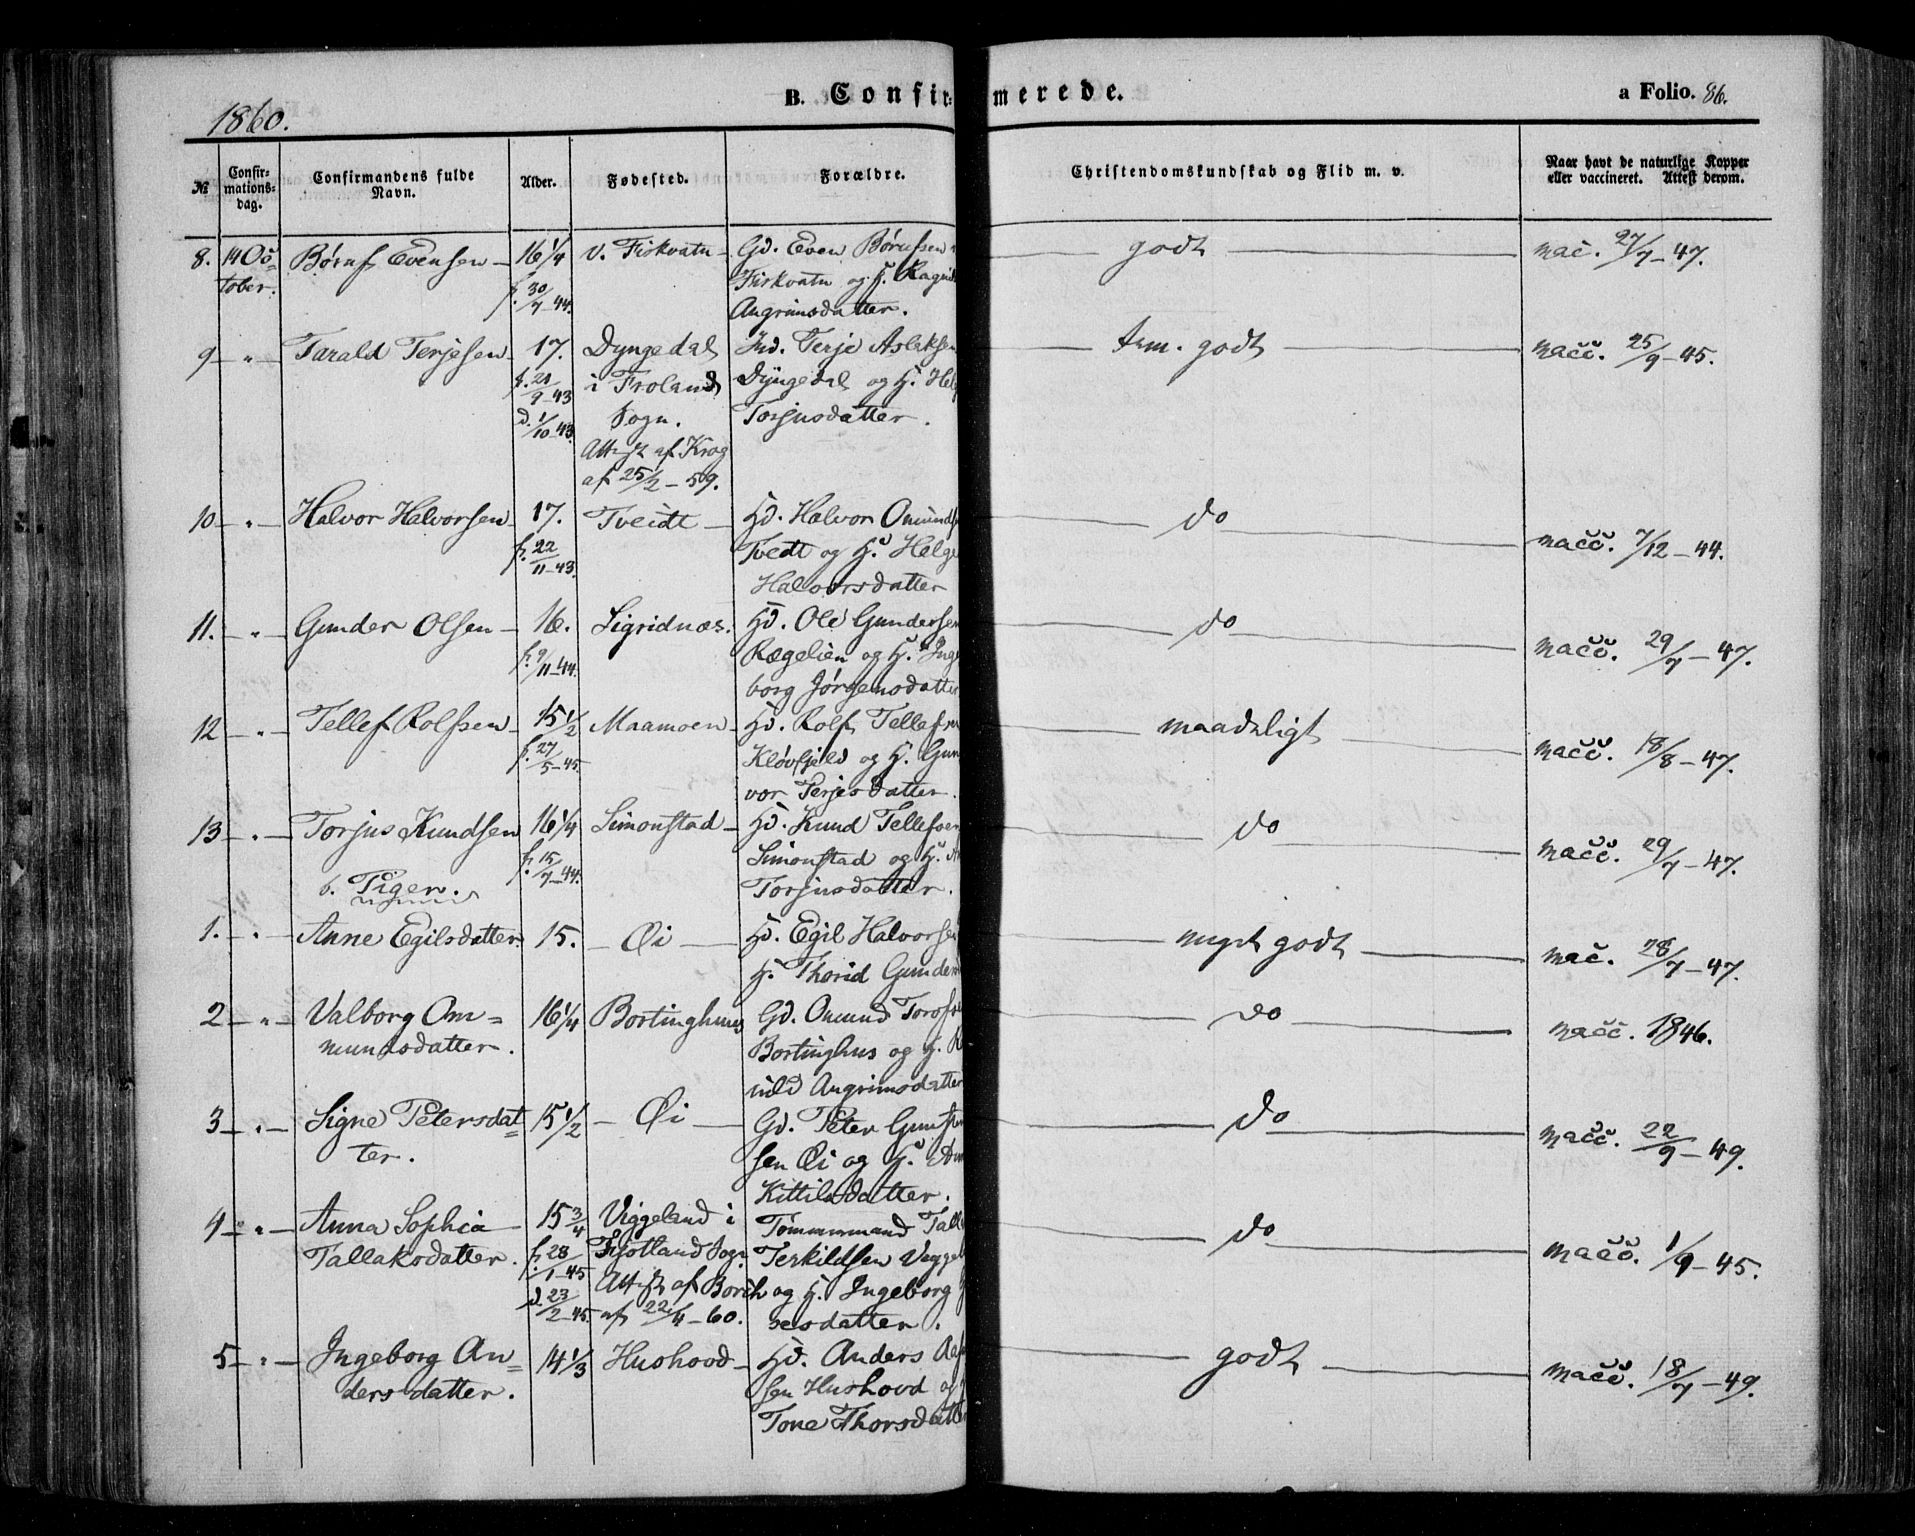 1860.
B. Confirmerede.
a Folio. 86.
№
Confirmationsdag.
Confirmandens fulde Navn.
Alder.
Fødested.
Forældre.
Christendomskundskab og Flid m. v.
Naar havt de naturlige Kopper eller vaccineret. Attest derom.
8. 14 Octo- Evensen 16 1/4 v. Fiskvatn Gd. Even
tober. f. 30/7-44. Fiskvatn og H.
Angrimsdatter.
godt
vac. 27/7-47.
9 " Tarald Terjesen 17. Dyngedal Ind. Terje Aslaksen
f. 21/9-43 i Froland Dyngedal og H.
d. 1/10-43. Sogn. Torjusdatter.
Attest af Krog
af 25/2-59.
tem. godt
vacc. 25/9-45.
10 " Halvor Halvorsen 17. Tveidt Hd. Halvor
f. 22/11-43. Tvedt og H. Helge
Halvorsdatter
do
vacc. 7/12-44.
11. " Gunder Olsen 16. Sigridnæs. Hd. Ole Gundersen
f. 9/11-44. Rægelien og H. Inge
borg Jørgensdatter
do
vacc. 29/7-47.
12 " Tellef Rolfsen 15 1/2 Maamoen Hd. Rolf Tellefsen
f. 27/5-45. Kløvfjeld og H. Gun
vor Terjesdatter.
maadeligt
vacc. 18/8-47.
13 " Torjus Knudsen 16 1/4 Simonstad Hd. Knud Tellefsen
f. 15/7-44. Simonstad og H.
Torjusdatter.
do
vacc. 29/7-47.
b. Piger.
1. " Anne Egilsdatter 15. Øi Hd. Egil Halvorsen
H. Thorid
meget godt
vac. 28/7-47.
2 " Valborg Om= 16 1/4 Bortinghuus Gd. Omund
mundsdatter. Bortinghus og H.
Angrimsdatter
do
vacc. 1846.
3 " Signe Petersdat= 15 1/2 Øi Gd. Peter
ter. sen Øi og H.
Kittilsdatter.
do
vacc. 22/9-49.
4 " Anna Sophia 15 3/4 Viggeland i Tømmermand
Tallaksdatter. f. 28/1-45 Sogn. Terkildsen
d. 23/2-45. Attest af Borch og H. Ingeborg
af 22/4-60. sesdatter.
do
vacc. 1/9-45.
5 " Ingeborg An= 14 1/3 Hushovd Hd. Anders
dersdatter. sen Hushovd og
Tone Thorsdatter
godt
vacc. 18/7-49.